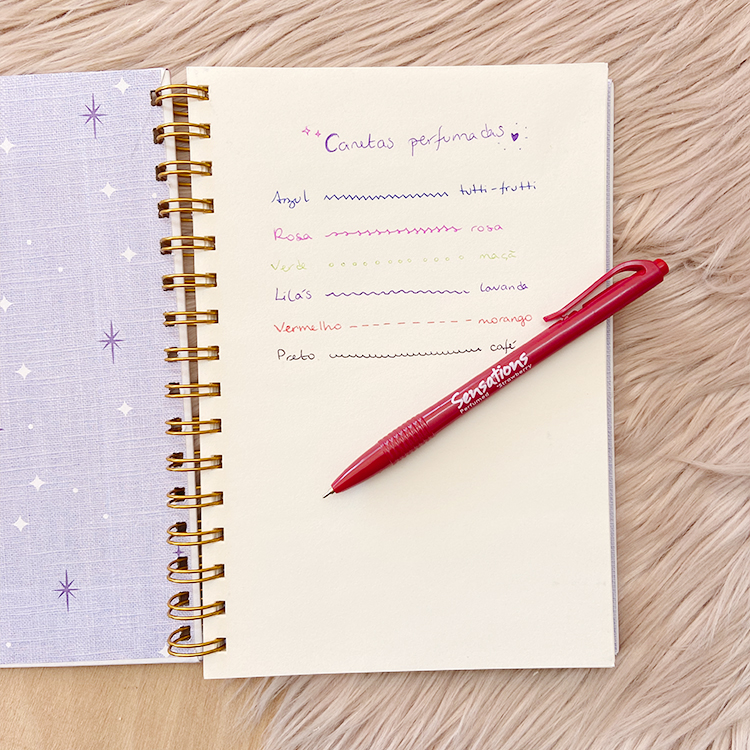 Canetas perfumadas
Azul tutti-frutti
Rosa rosa
Verde maçã
Lilás lavanda
Vermelho morango
Preto café
Sensations
Perfumed Strawberry